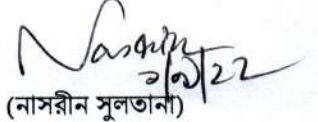 Nasrin
১/৯/২২
(নাসরীন সুলতানা)